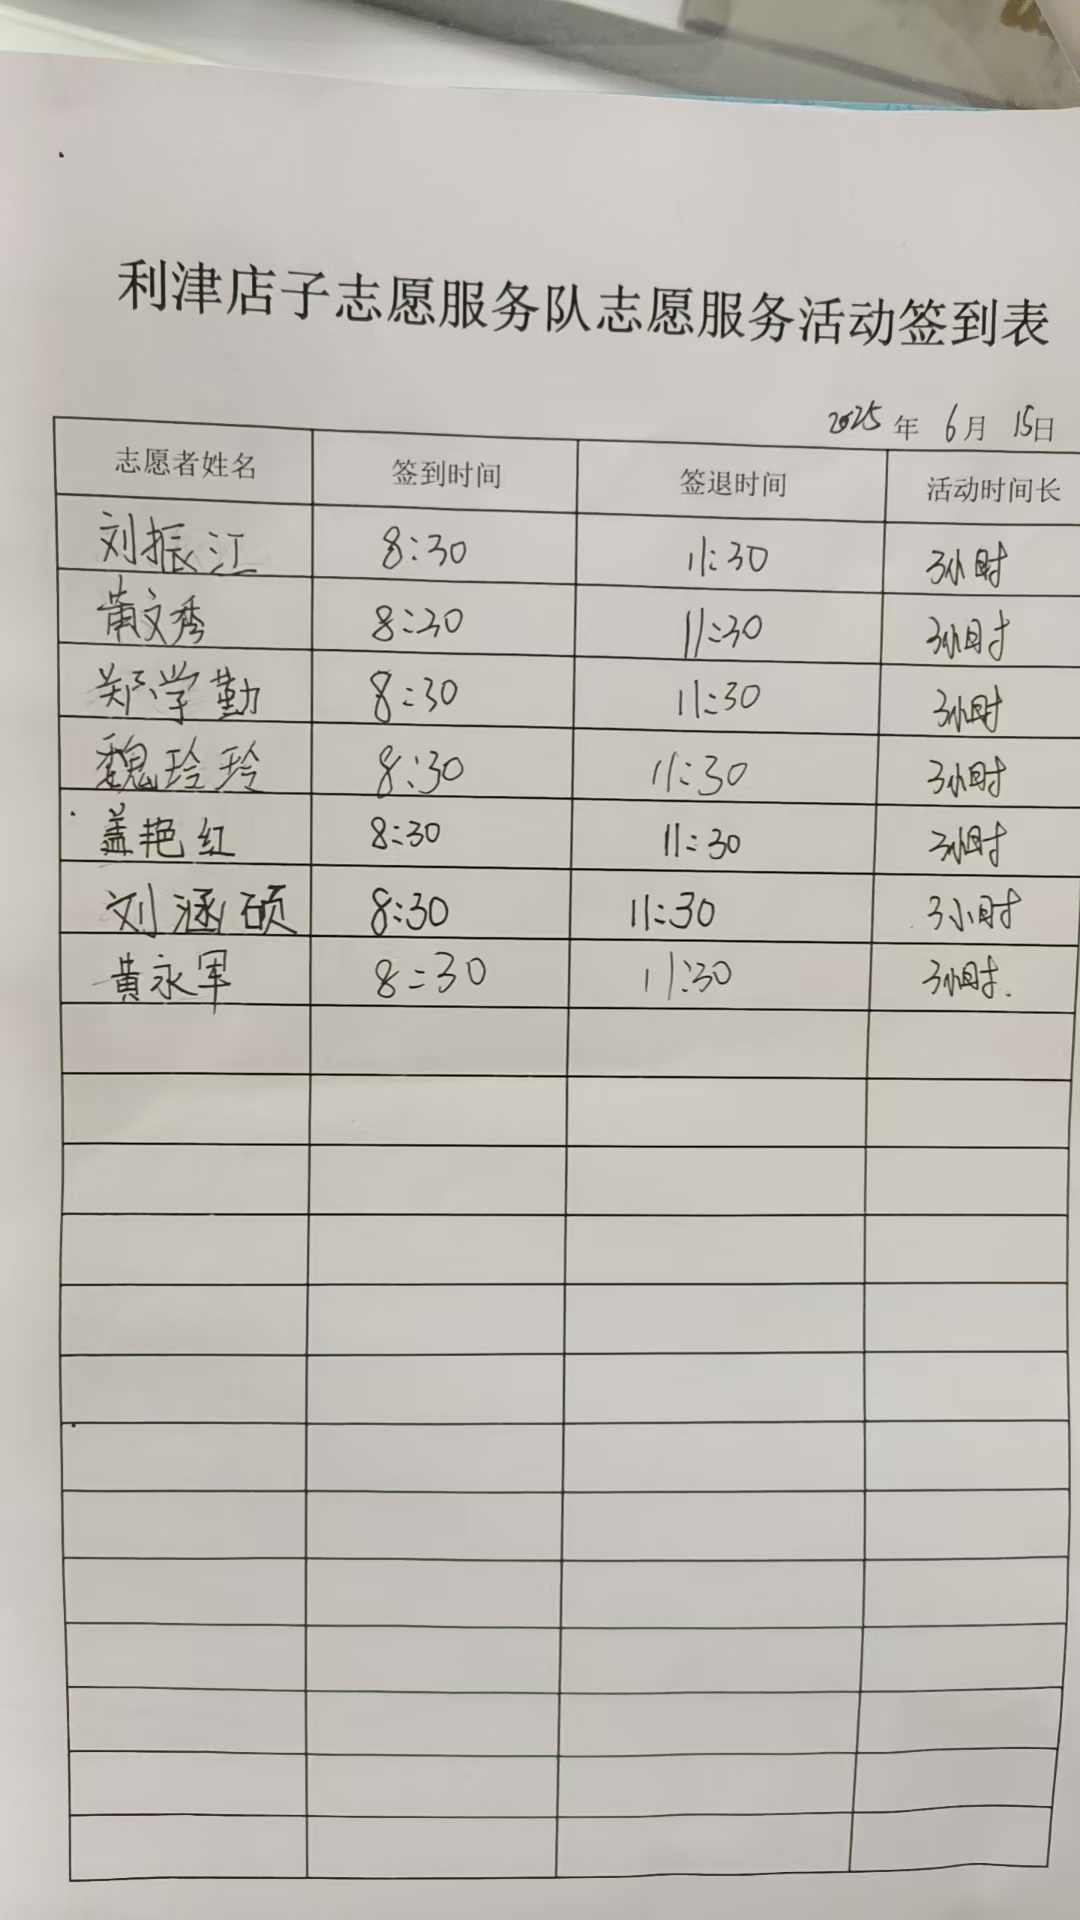 利津店子志愿服务队志愿服务活动签到表
2025 年 6 月 15 日
志愿者姓名 签到时间 签退时间 活动时间长
刘振江 8:30 11:30 3小时
文秀 8:30 11:30 3小时
郑学勤 8:30 11:30 3小时
魏玲玲 8:30 11:30 3小时
盖艳红 8:30 11:30 3小时
刘涵硕 8:30 11:30 3小时
黄永军 8:30 11:30 3小时.